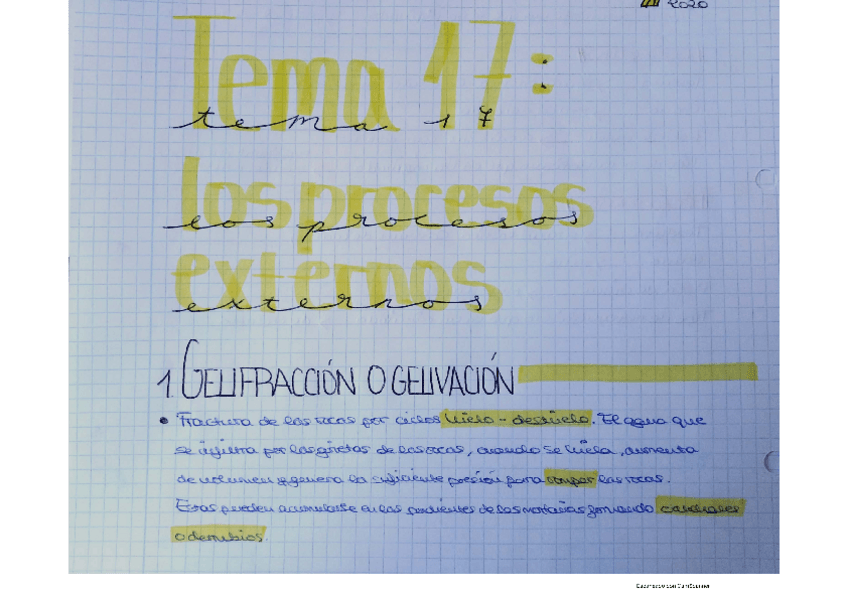 2020
Tema 17:
tema 17
los procesos
los procesos
externos
externos
1. GELIFRACCIÓN O GELIVACIÓN
• Fractura de las rocas por ciclos hielo - deshielo. El agua que
se infiltra por las grietas de las rocas, cuando se hiela, aumenta
de volumen y genera la suficiente presión para romper las rocas.
Estas pueden acumularse en las pendientes de las montañas formando canchales
o derrubios.
Escaneado con CamScanner